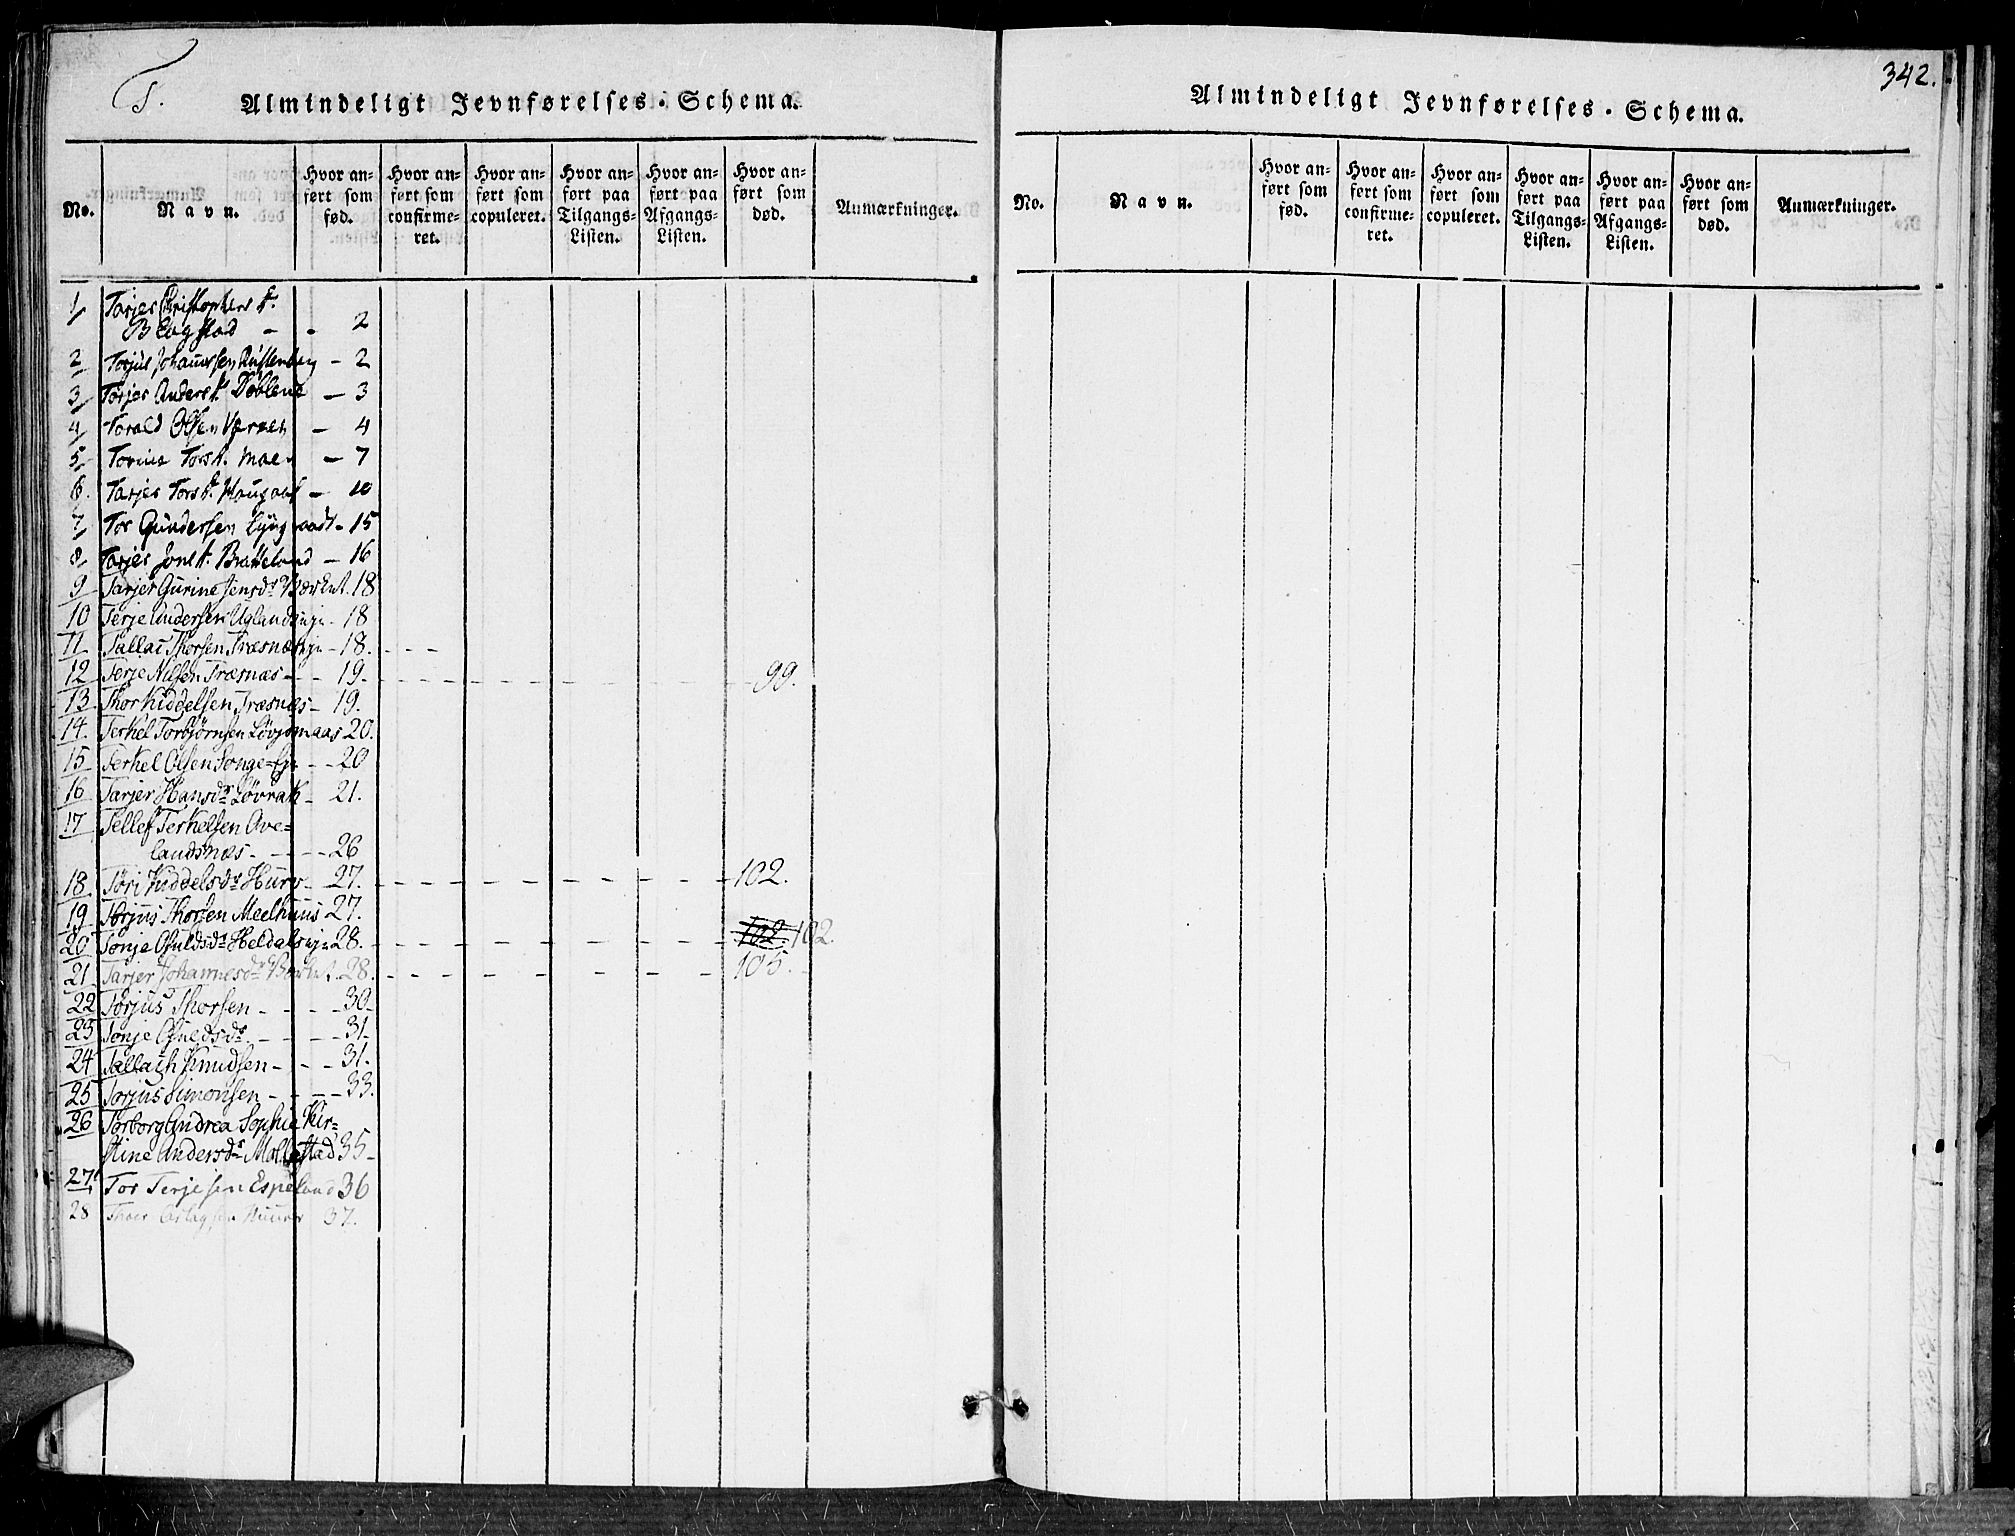 T.
Almindeligt Jevnførelses-Schema.
No.
Navn.
Hvor anført som fød.
Hvor anført som confirmeret.
Hvor anført som copuleret.
Hvor anført paa Tilgangs-Listen.
Hvor anført paa Afgangs-Listen.
Hvor anført som død.
Anmærkninger.
1 Tarjer Christophers
Blagstad - - 2
2 Torjus Johannssen - 2
3 Torjer Anders Døblend - 3
4 Torald Olsen - 4
5 Torine Tors Moe - 7
6. Tarjer Tors Haugaas - 10
7 Tor Gundersen Lyngraadt - 15
8 Tarjer Jons Bratteland - 16
9 Tarjer Gurine Jensdr 18
10 Terje Andersen Uglandsejn - 18
11 Tallac Thorsen Træsnæsejn - 18. - - -
12 Terje Nilsen Træsnæs - - - 19. - - - 99.
13 Thor Kiddelsen Træsnæs - 19.
14. Terkel Torbjørnsen Løvjomaas 20.
15 Terkel Olsen Songe-Ejn - - 20
16 Tarjer Hansdr Løvrak - 21.
17 Tellef Terkelsen Ove=
landsnæs - - - - 26
18. Tøri Kiddelsdr Hurv - 27. - - - 102.
19 Torjus Thorsen Meelhuus 27.
20 Tonje Osuldsdr Heldalsejn 28. - - - 102. 102.
21. Tarjer Johannesdr 28. - - - 105.
22 Torjus Thorsen - - - - 30
23 Tonje Osuldsdr - - - - 31
24 Tallach Knudsen - - - 31.
25 Torjus Simonsen - - - - 33.
26 Torborg Andrea Sophie Kir=
stine Andersdr Mollestad 35 -
27 Tor Terjesen Espeland 36
28 Thoer Aslagsen Huurv 37.
342.
Almindeligt Jevnførelses-Schema.
No.
Navn.
Hvor anført som fød.
Hvor anført som confirmeret.
Hvor anført som copuleret.
Hvor anført paa Tilgangs-Listen.
Hvor anført paa Afgangs-Listen.
Hvor anført som død.
Anmærkninger.